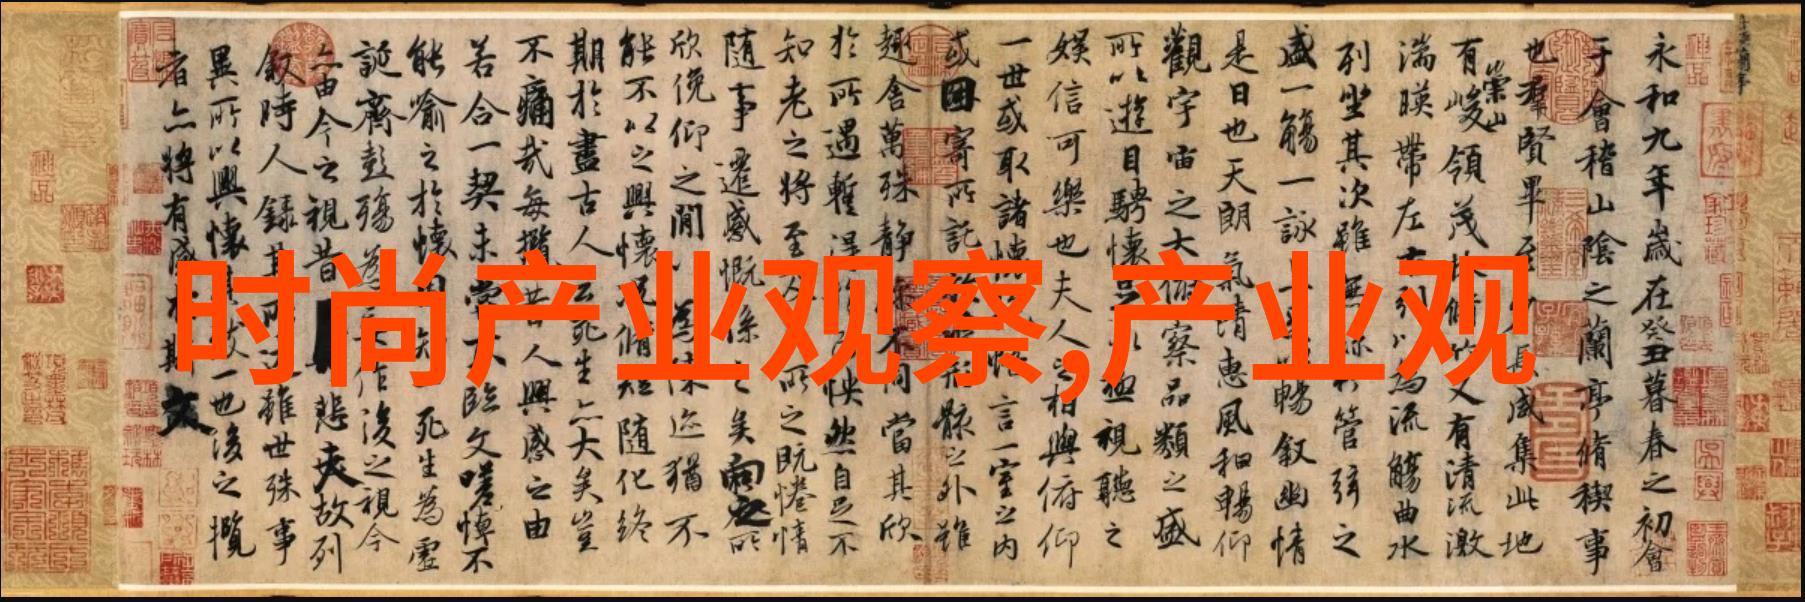 时尚产业观察,产业观
永和九年歲在癸丑暮春之初會
于會稽山陰之蘭亭脩稧事
也羣賢畢至少長咸集此地
有崇山峻領茂林脩竹又有清流激
湍暎帶左右引以為流觴曲水
列坐其次雖無絲竹管弦之
盛一觴一詠亦足以暢叙幽情
是日也天朗氣清惠風和暢仰
觀宇宙之大俯察品類之盛
所以遊目騁懷足以極視聽之
娛信可樂也夫人之相與俯仰
一世或取諸懷抱悟言一室之內
或因寄所託放浪形骸之外雖
趣舍萬殊靜躁不同當其欣
於所遇暫得於己怏然自足不
知老之將至及其所之既惓情
隨事遷感慨係之矣向之所
欣俛仰之閒以為陳迹猶不
能不以之興懷況脩短隨化終
期於盡古人云死生亦大矣豈
不痛哉每攬昔人興感之由
若合一契未嘗不臨文嗟悼不
能喻之於懷固知一死生為虛
誕齊彭殤為妄作後之視今
亦由今之視昔悲夫故列
叙時人錄其所述雖世殊事
異所以興懷其致一也後之攬
者亦將有感於斯文